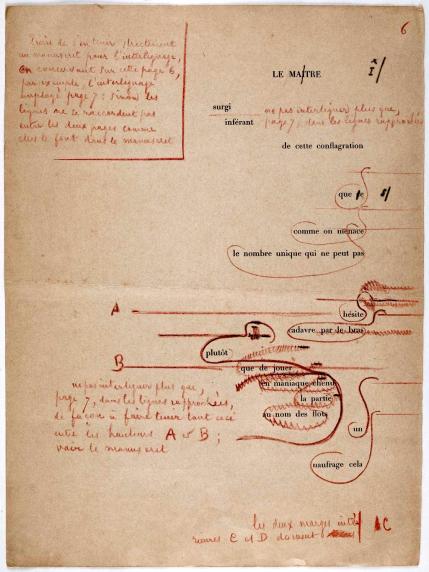 6
Prière de s'en tenir strictement
au manuscrit pour l'interlignage,
en conservant sur cette page 6,
par exemple, l'interlignage
employé page 7 : sinon les
lignes ne se raccordent pas
entre les deux pages comme
elles le font dans le manuscrit
LE MAITRE
Î/
surgi
inférant
ne pas interligner plus que,
page 7, dans les lignes rapprochées
de cette conflagration
que e
s/
comme on menace
le nombre unique qui ne peut pas
A
hésite
cadavre par de bras
plutôt
B
que de jouer
en maniaque chenu
la partie
au nom des flots
ne pas interligner plus que,
page 7, dans les lignes rapprochées,
de façon à faire tenir tout ceci
entre les hauteurs A et B ;
voir le manuscrit
un
naufrage cela
les deux marges inté
rieures C et D doivent
C